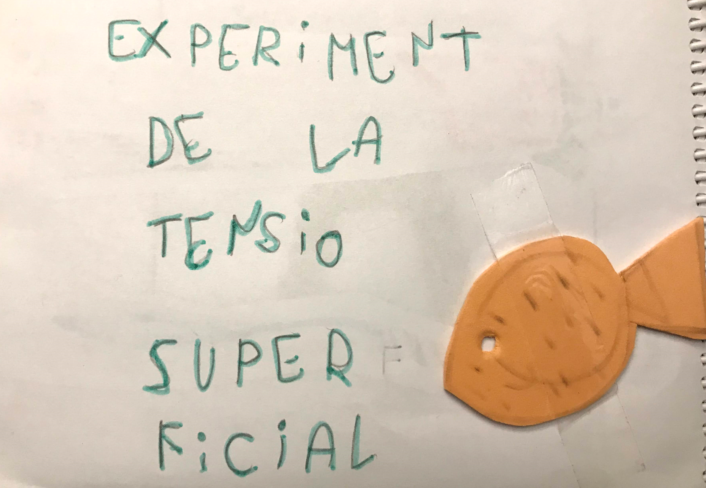 EXPERiMENT
DE LA
TENSiO
SUPER F
FiCiAL